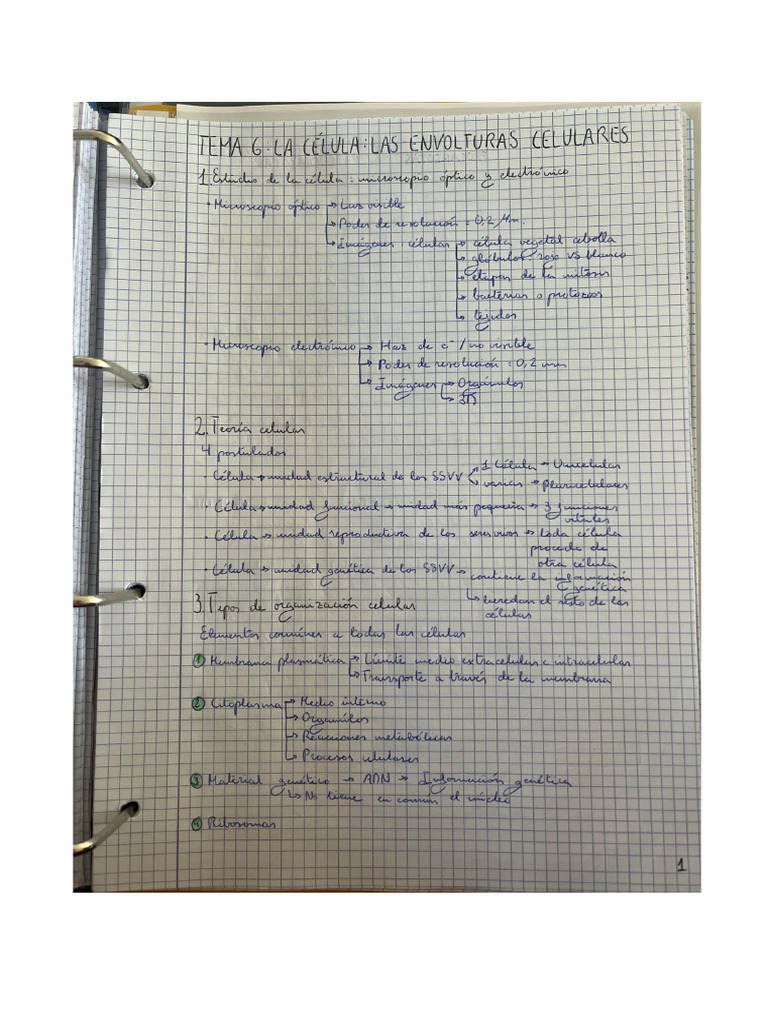 TEMA 6: LA CÉLULA: LAS ENVOLTURAS CELULARES
1. Estudio de la célula: microscopio óptico y electrónico
· Microscopio óptico → Luz visible
→ Poder de resolución: 0,2 μm.
→ Imágenes: células → célula vegetal cebolla
→ glóbulos: rojo vs blanco
→ etapas de la mitosis
→ bacterias o protozoos
→ tejidos
· Microscopio electrónico → Haz de e⁻ / no visible
→ Poder de resolución: 0,2 nm
→ Imágenes → Orgánulos
→ 3D
2. Teoría celular
4 postulados
· Célula → unidad estructural de los SSVV → 1 célula → Unicelular
→ varias → Pluricelulares
· Célula → unidad funcional → unidad más pequeña → 3 funciones
vitales
· Célula → unidad reproductiva de los seres vivos → toda célula
procede de
otra célula
· Célula → unidad genética de los SSVV → contiene la información
genética
→ heredan el resto de las
células
3. Tipos de organización celular
Elementos comunes a todas las células
1 Membrana plasmática → Límite medio extracelular e intracelular
→ Transporte a través de la membrana
2 Citoplasma → Medio interno
→ Orgánulos
→ Reacciones metabólicas
→ Procesos celulares
3 Material genético → ADN → Información genética
→ No tiene en común el núcleo
4 Ribosomas
1